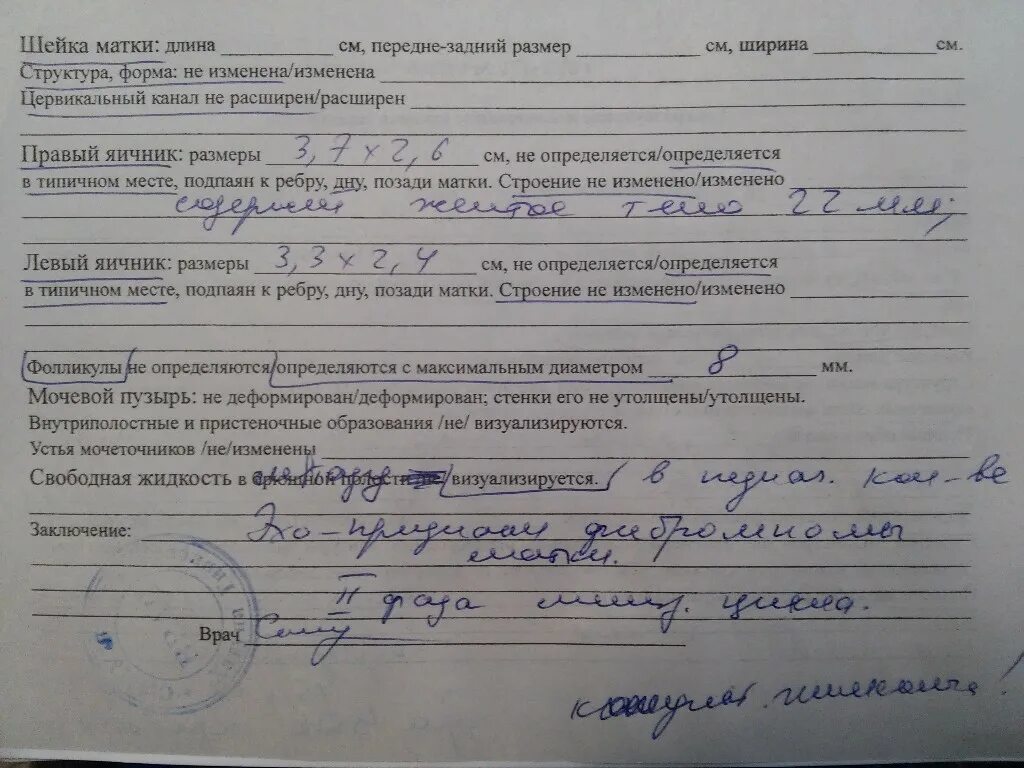 Шейка матки: длина ____________ см, передне-задний размер ____________ см, ширина ____________ см.
Структура, форма: не изменена/изменена
Цервикальный канал не расширен/расширен
Правый яичник: размеры 3,7 x 2,6 см, не определяется/определяется
в типичном месте, подпаян к ребру, дну, позади матки. Строение не изменено/изменено
содержит желтое тело 22 мм;
Левый яичник: размеры 3,3 x 2,4 см, не определяется/определяется
в типичном месте, подпаян к ребру, дну, позади матки. Строение не изменено/изменено
Фолликулы не определяются/определяются с максимальным диаметром 8 мм.
Мочевой пузырь: не деформирован/деформирован; стенки его не утолщены/утолщены.
Внутриполостные и пристеночные образования /не/ визуализируются.
Устья мочеточников /не/изменены
Свободная жидкость в брюшной полости не/визуализируется. в кол-ве
Заключение: Эхо-признаки фибромиомы
матки.
II фаза менстр. цикла.
Врач
гинеколога!